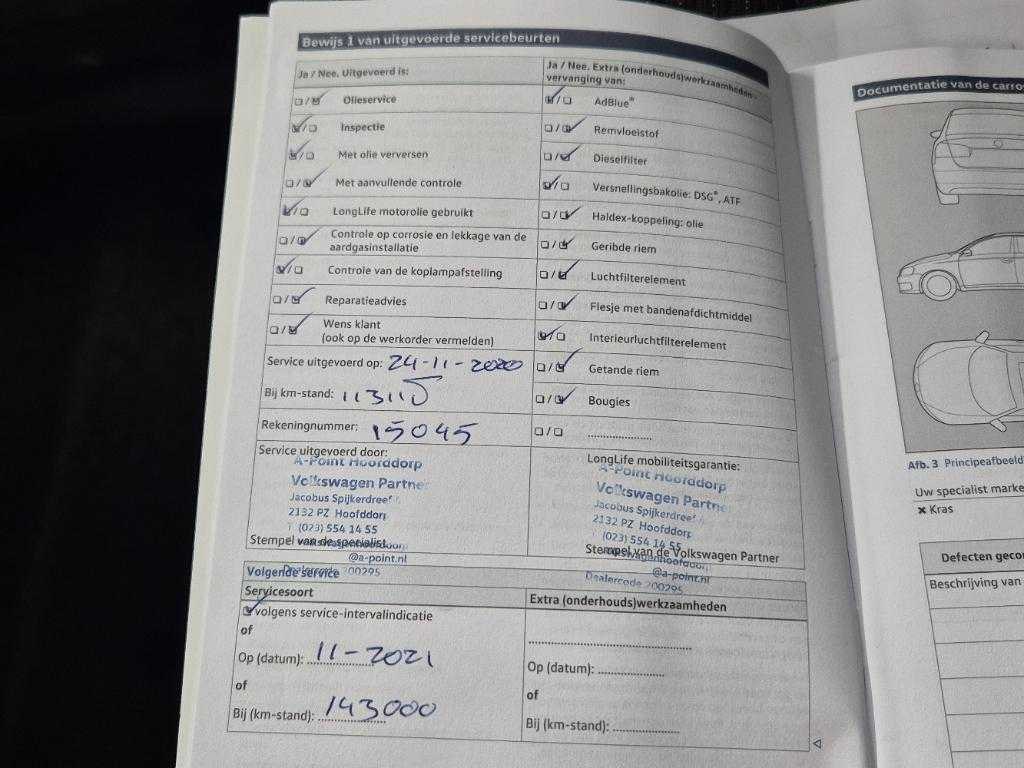 Bewijs 1 van uitgevoerde servicebeurten
Ja / Nee. Uitgevoerd is:
Olieservice
Inspectie
Met olie verversen
Met aanvullende controle
LongLife motorolie gebruikt
Controle op corrosie en lekkage van de
aardgasinstallatie
Controle van de koplampafstelling
Reparatieadvies
Wens klant
(ook op de werkorder vermelden)
Service uitgevoerd op: 24-11-2020
Bij km-stand:
Rekeningnummer: 15045
Ja / Nee. Extra (onderhouds)werkzaamheden -
vervanging van:
AdBlue®
Remvloeistof
Dieselfilter
Versnellingsbakolie: DSG®, ATF
Haldex-koppeling: olie
Geribde riem
Luchtfilterelement
Flesje met bandenafdichtmiddel
Interieurluchtfilterelement
Getande riem
Bougies
Service uitgevoerd door:
A-Point Hoofddorp
Volkswagen Partner
Jacobus Spijkerdreef
2132 PZ Hoofddorp
(023) 554 14 55
Stempel van de specialist
@a-point.nl
Dealercode 200295
LongLife mobiliteitsgarantie:
A-Point Hoofddorp
Volkswagen Partne
Jacobus Spijkerdreef
2132 PZ Hoofddorp
(023) 554 14 55
Stempel van de Volkswagen Partner
@a-point.nl
Dealercode 200295
Volgende service
Servicesoort
volgens service-intervalindicatie
of
Op (datum): 11-2021
of
Bij (km-stand): 143000
Extra (onderhouds)werkzaamheden
Op (datum):
of
Bij (km-stand):
Documentatie van de carro
Afb. 3 Principeafbeeld
Uw specialist marke
× Kras
Defecten geco
Beschrijving van